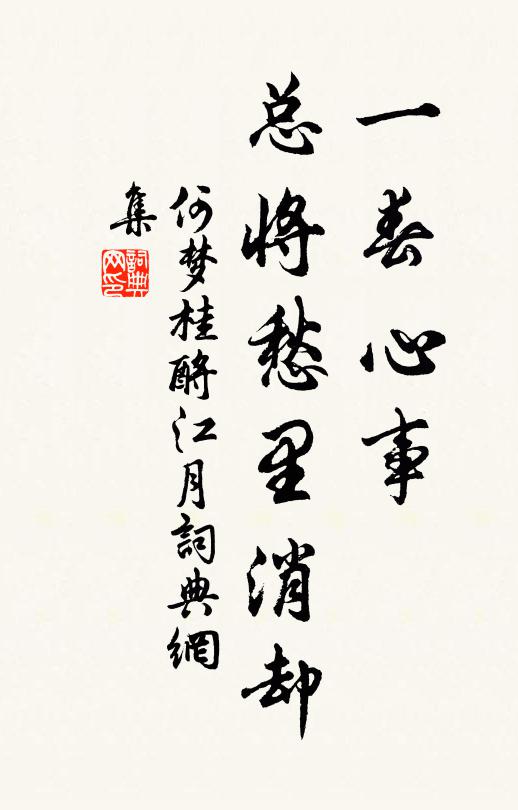 一春心事
总将愁里消却
何梦桂酹江月詞典網
集
詞典
网印